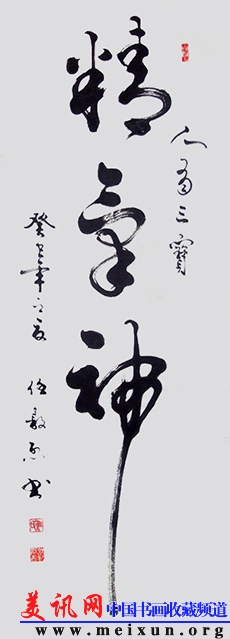 人有三寳
精气神
癸巳年之夏
任毅忠书
美讯网 中国书画收藏频道
www.meixun.org